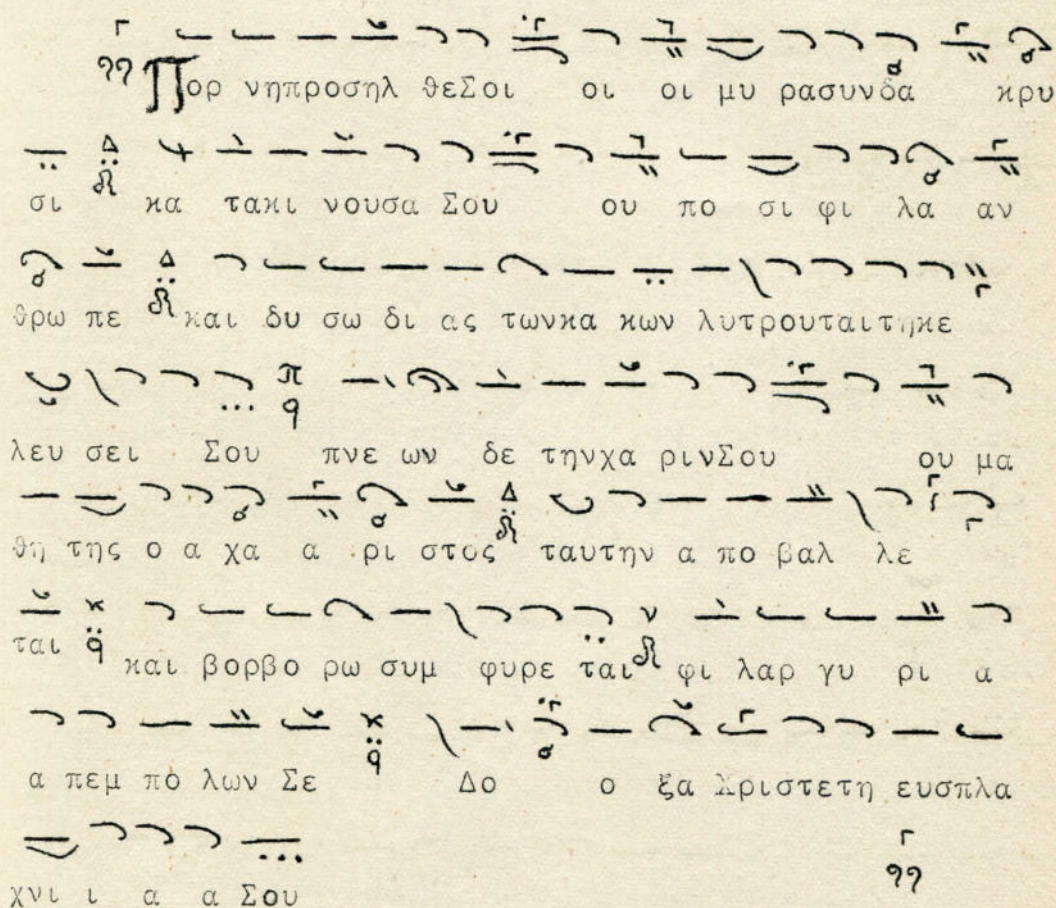 Πορ νηπροσηλ θεΣοι οι οι μυ ρασυνδα κρυ
σι κα τακι νουσα Σου ου πο σι φι λα αν
θρω πε και δυ σω δι ας τωνκα κων λυτρουταιτηκε
λευ σει Σου πνε ων δε τηνχα ρινΣου ου μα
θη της ο α χα α ρι στος ταυτην α πο βαλ λε
ται και βορβο ρω συμ φυρε ται φι λαρ γυ ρι α
α πεμ πο λων Σε Δο ο ξα Χριστετη ευσπλα
χνι ι α α Σου